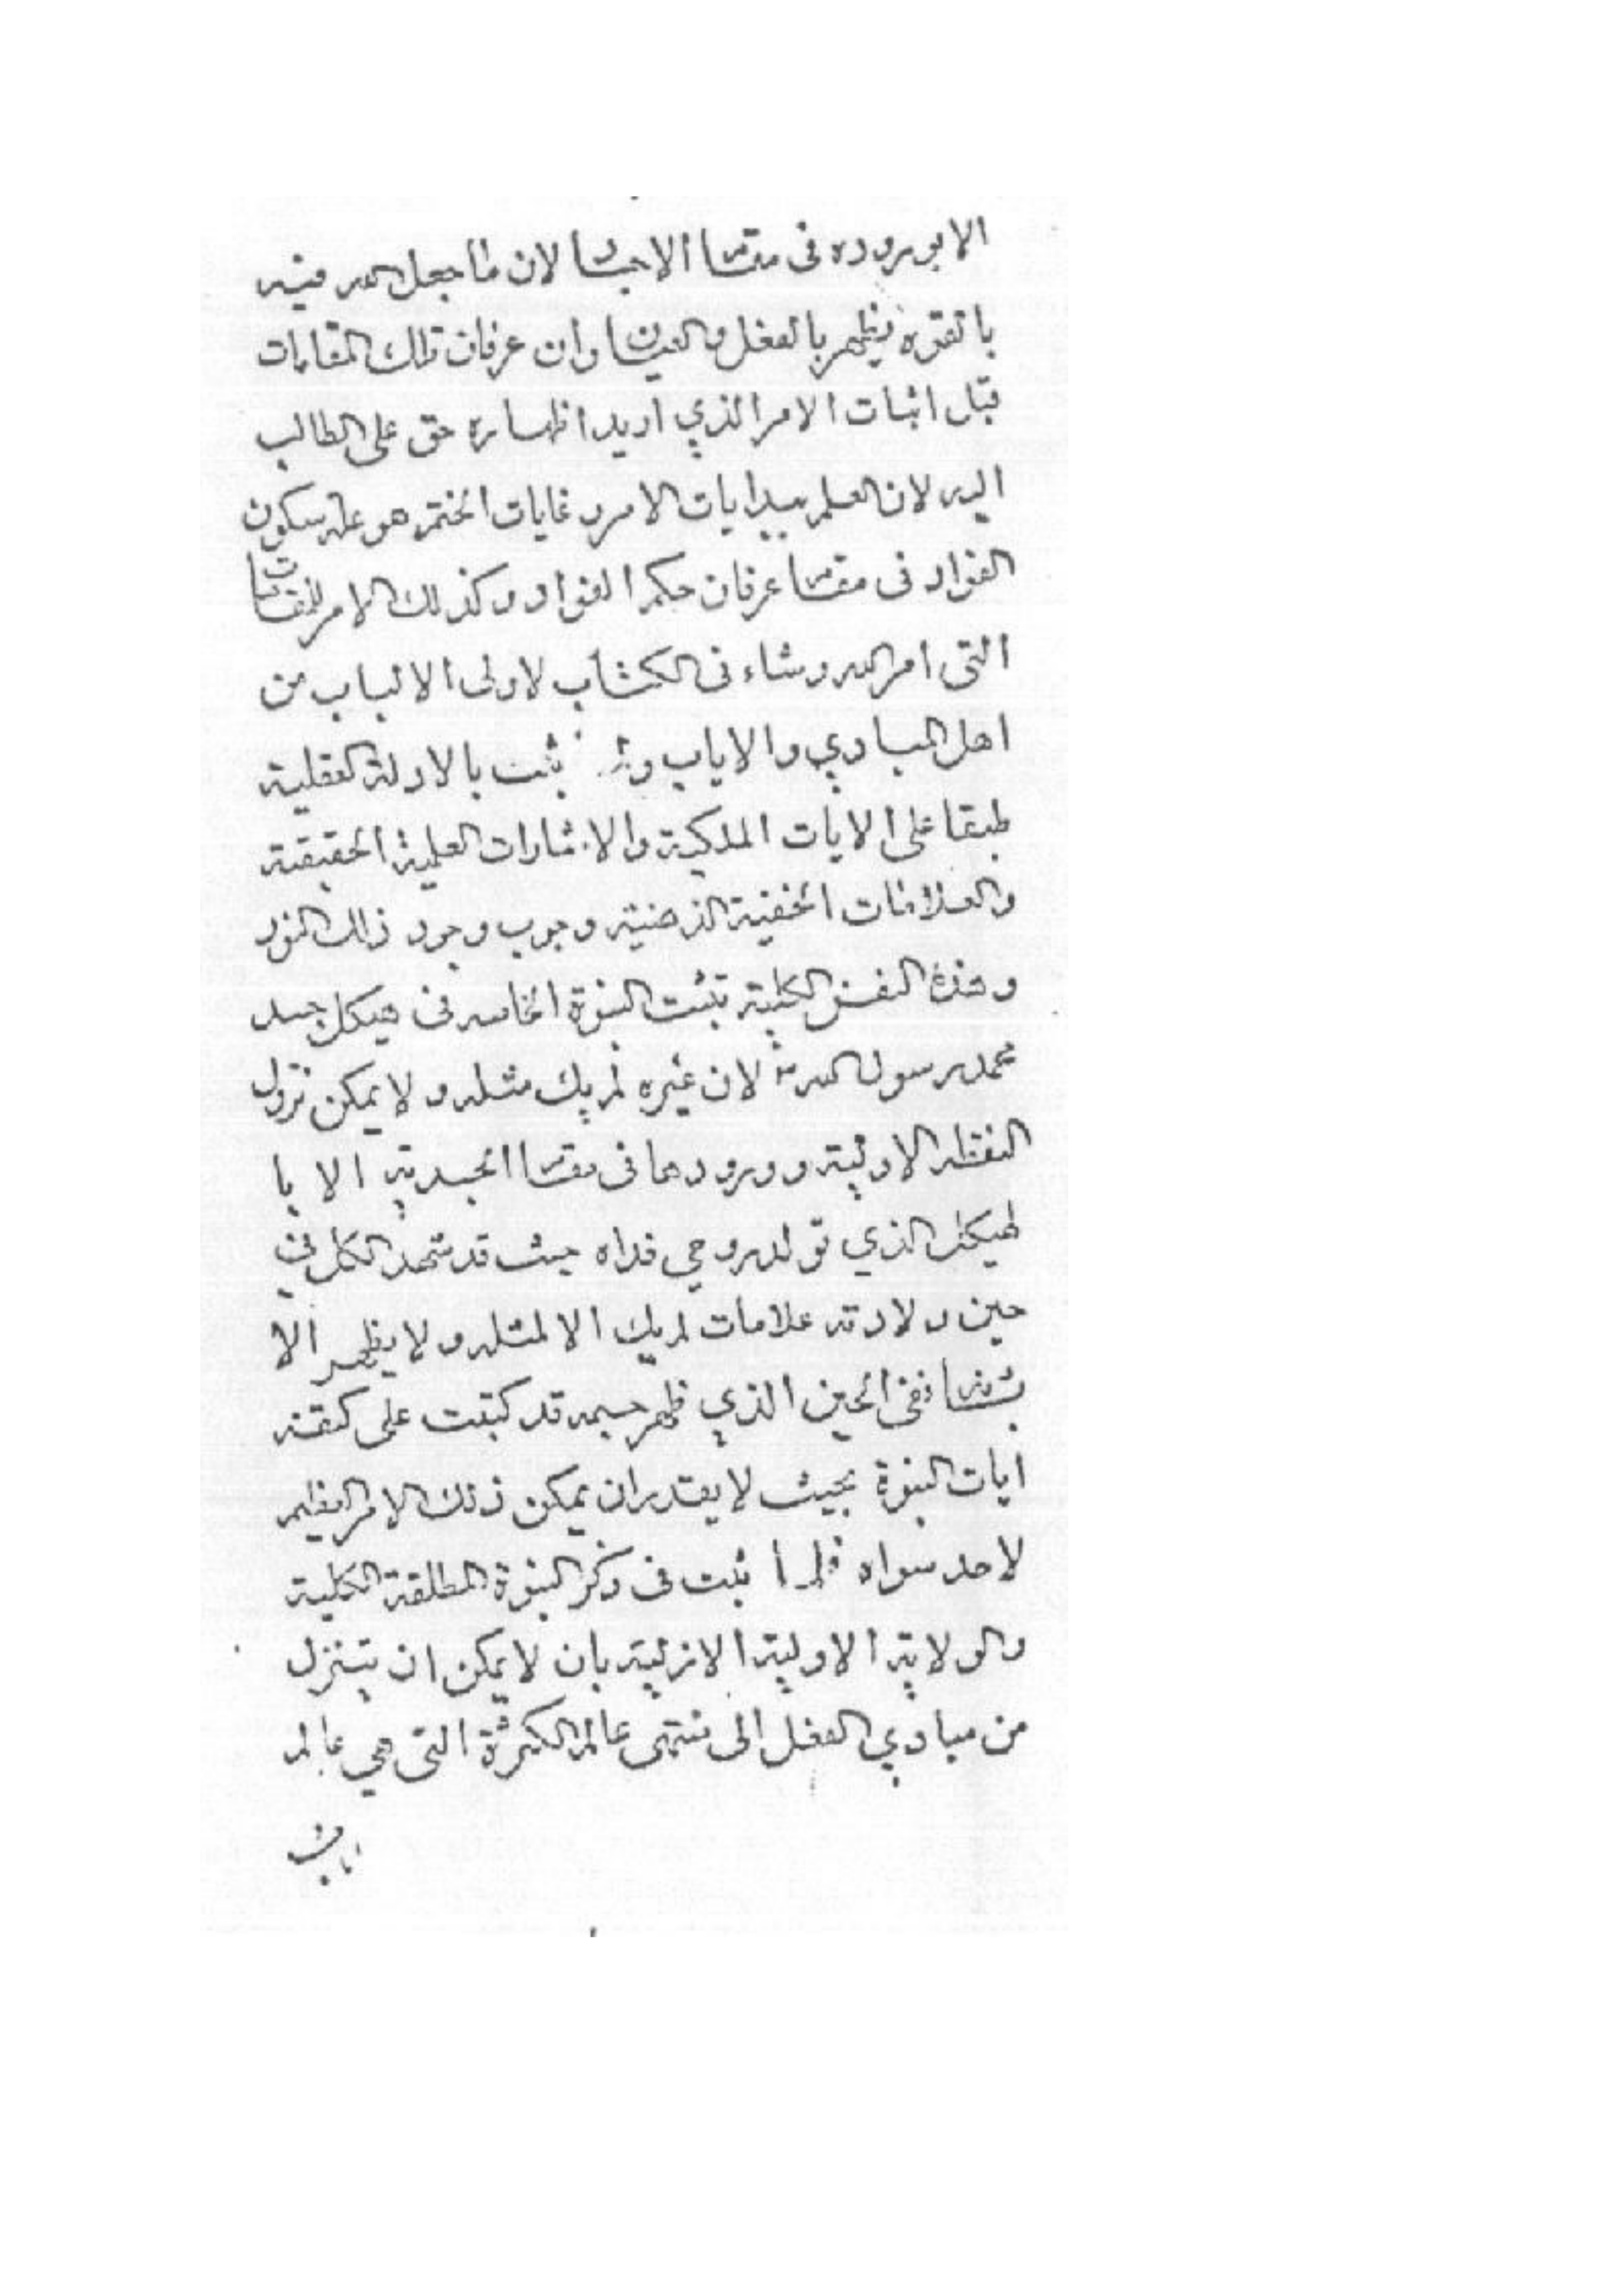 الا بوروده فى مقام الاجساد لان ما جعل الله فيه
بالقوه يظهر بالفعل والعيان وان عرفان تلك المقامات
قبل اثبات الامر الذي اريد اظهاره حق على الطالب
اليه لان العلم ببدايات الامر وغايات الختم هو علة سكون
الفواد فى مقام عرفان حكم الفواد وكذلك الامر للمقامات
التى امر الله وشاء فى الكتاب لاولى الالباب من
اهل المبادي والاياب ثبت بالادلة العقلية
طبقا على الايات الملكية والاشارات العلمية الحقيقية
والعلامات الخفية الذهنية وجوب وجود ذلك النور
وهذه النفس الكلية تثبت النبوة الخاصه فى هيكل جسد
محمد رسول الله ص لان غيره لم يك مثله ولا يمكن نزول
النقطه الاولية وورودها فى مقام الجسدية الا با
لهيكل الذي تولد روحي فداه حيث قد شهد الكل في
حين ولادته علامات لم يك الا لمثله ولا يظهر الا
بشانها ففى الحين الذي ظهر جسمه قد كتبت على كتفه
ايات النبوة بحيث لا يقدر ان يمكن ذلك الامر العظيم
لاحد سواه فلما ثبت فى ذكر النبوة المطلقة الكلية
والولاية الاولية الازلية بان لا يمكن ان يتنزل
من مبادي الفعل الى منتهى عالم الكثرة التى هي عالم